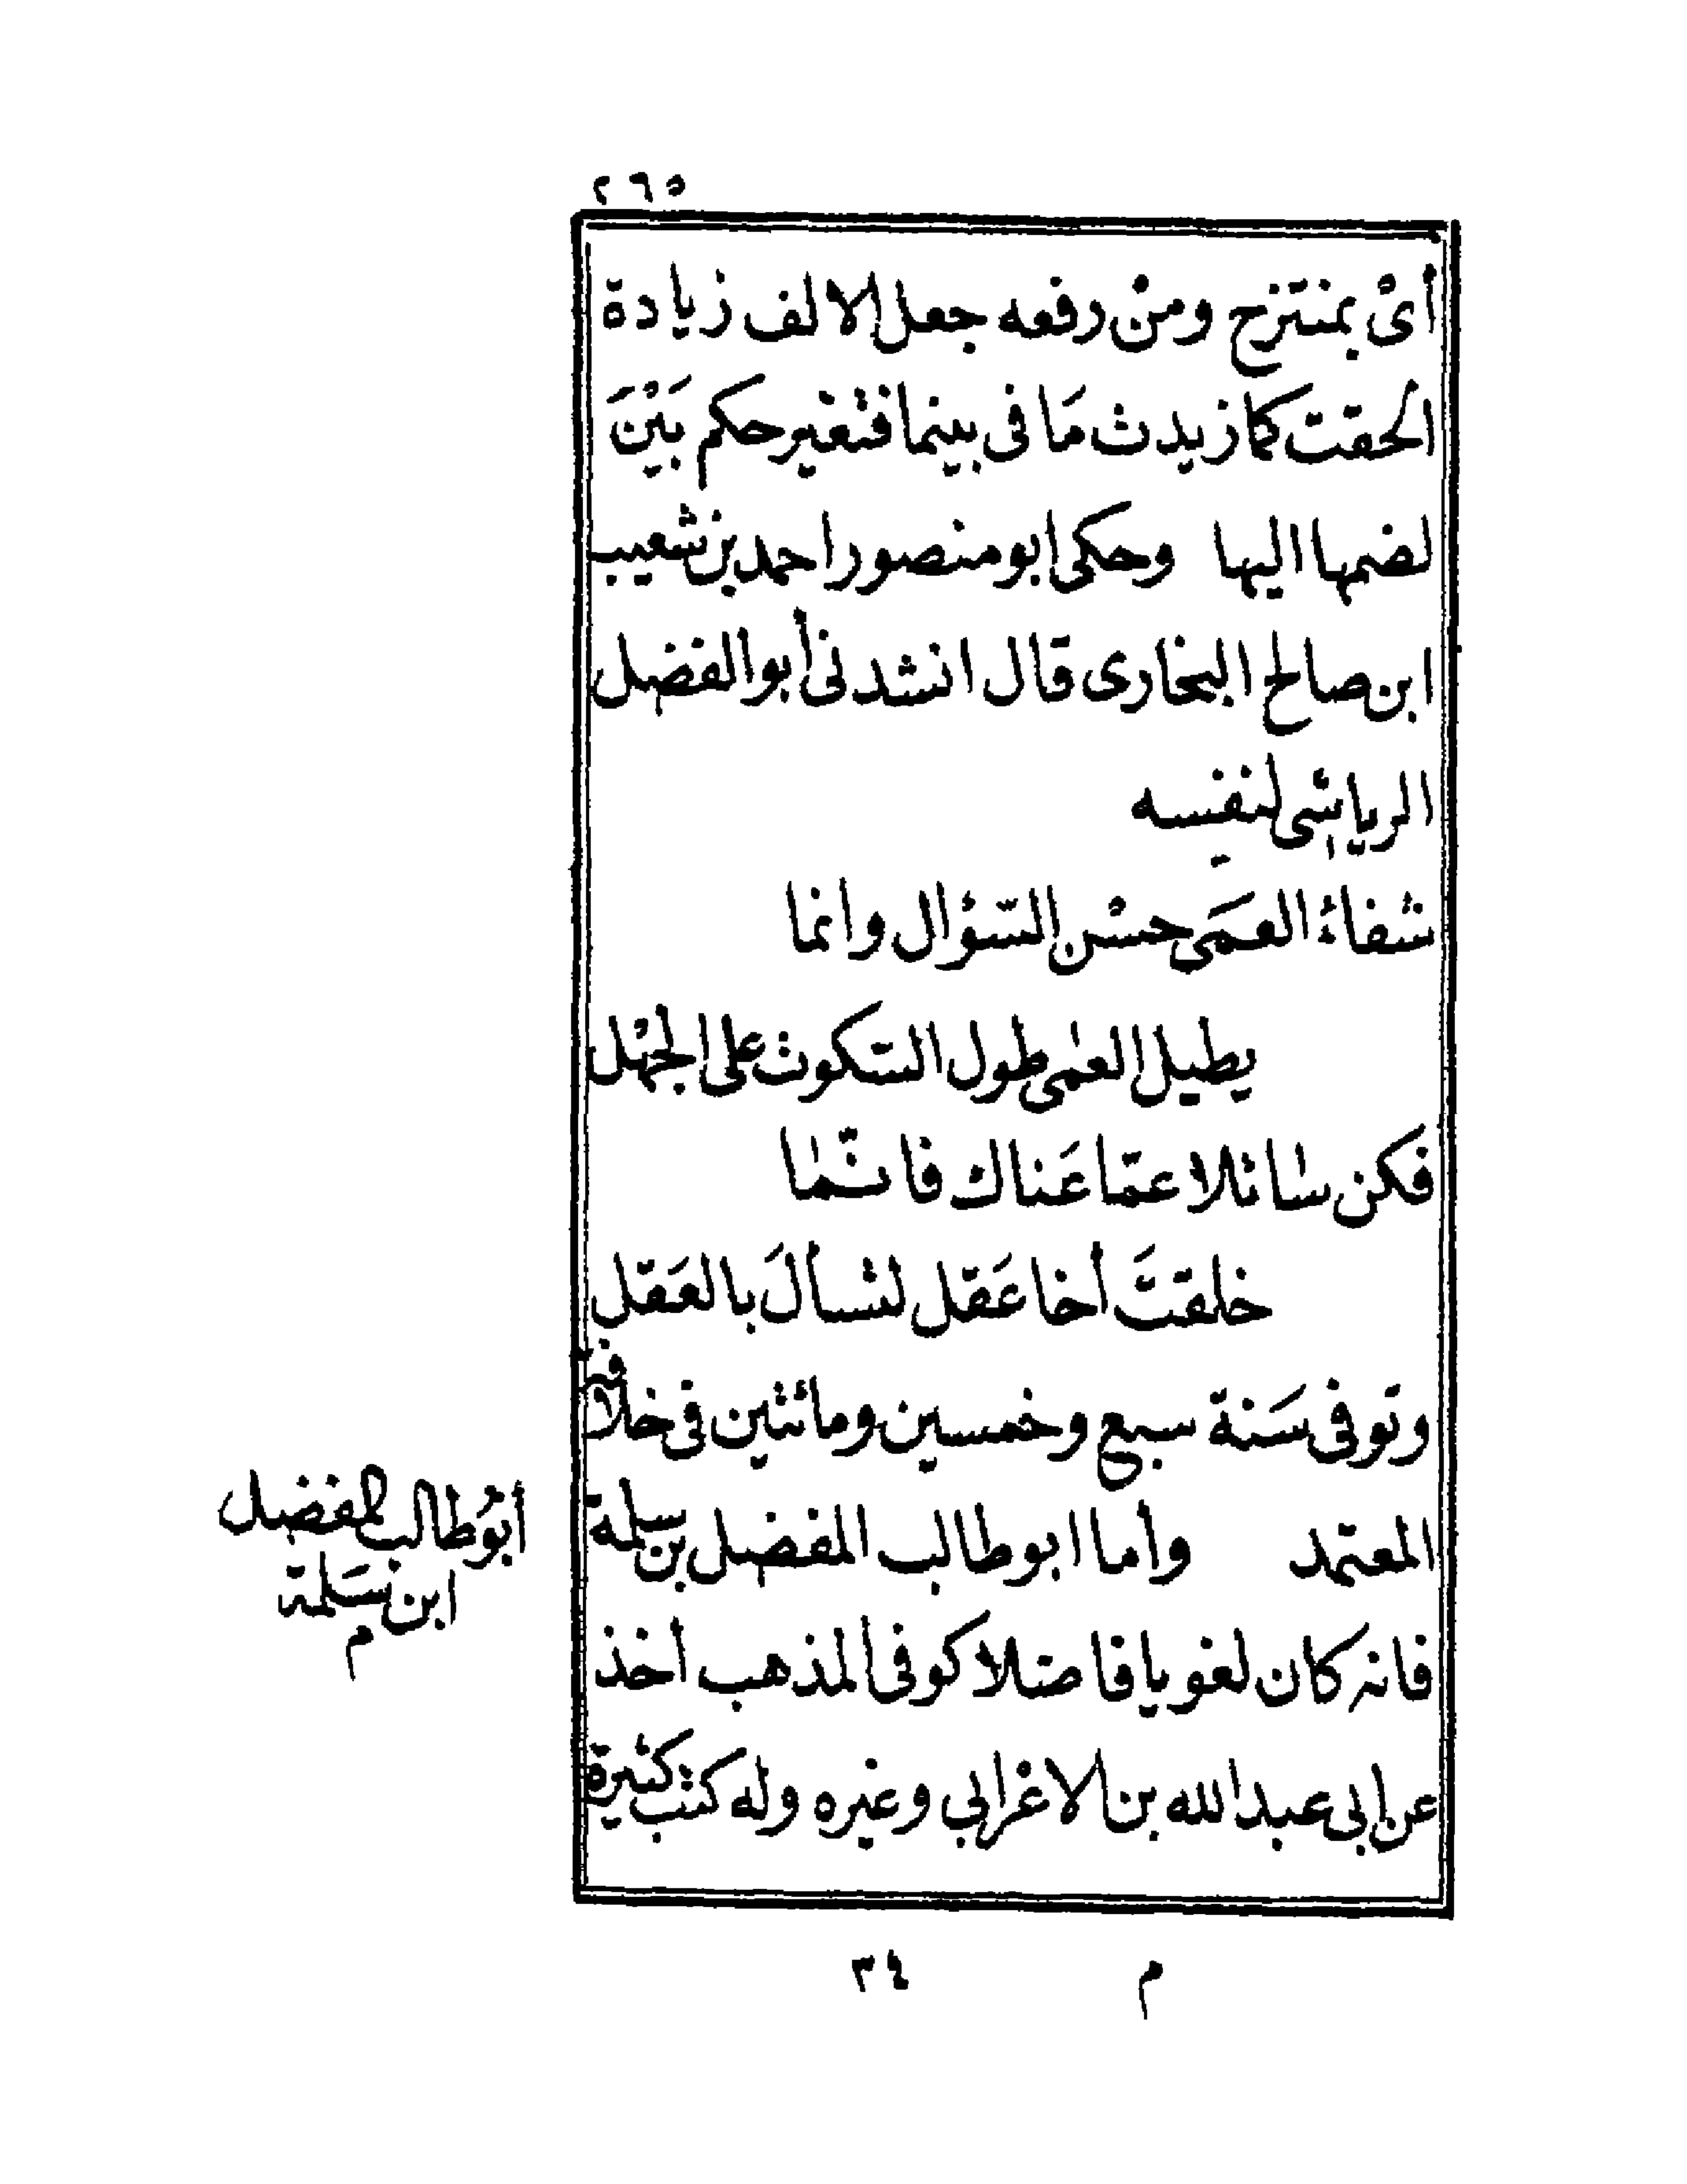 ٢٦٥
أىْ بمنتزح ومنْ رفعه جعل الالف زيادة
الحقت كما زيدث مَا فى بينما فتغير حكم بَيْنَ
لضمها اليها وحكى ابو منصور احمد بن شعيب
ابن صالح البخارى قال انشدنى أبو الفضل
الرياشى لنفسه
شفاءُ العمَى حسْن السّؤال وانما
يطيل العمى طول السّكوت على الجهْل
فكن سائلا عمّا عَناك فانّما
خلقتَ أخا عَقل لتسألَ بالعَقل
وتوفى سَنة سبع وخمسين ومائتين فى خلافة
المعتمد وأما ابو طالب المفضل بن سلمة
فانه كان لغويا فاضلا كوفى المذهب أخذ
عن ابى عبد الله بن الاعرابي وغيره وله كتب كثيرة
أبوُ طالب المفضل
ابن سَلمة
م
م ٣٤